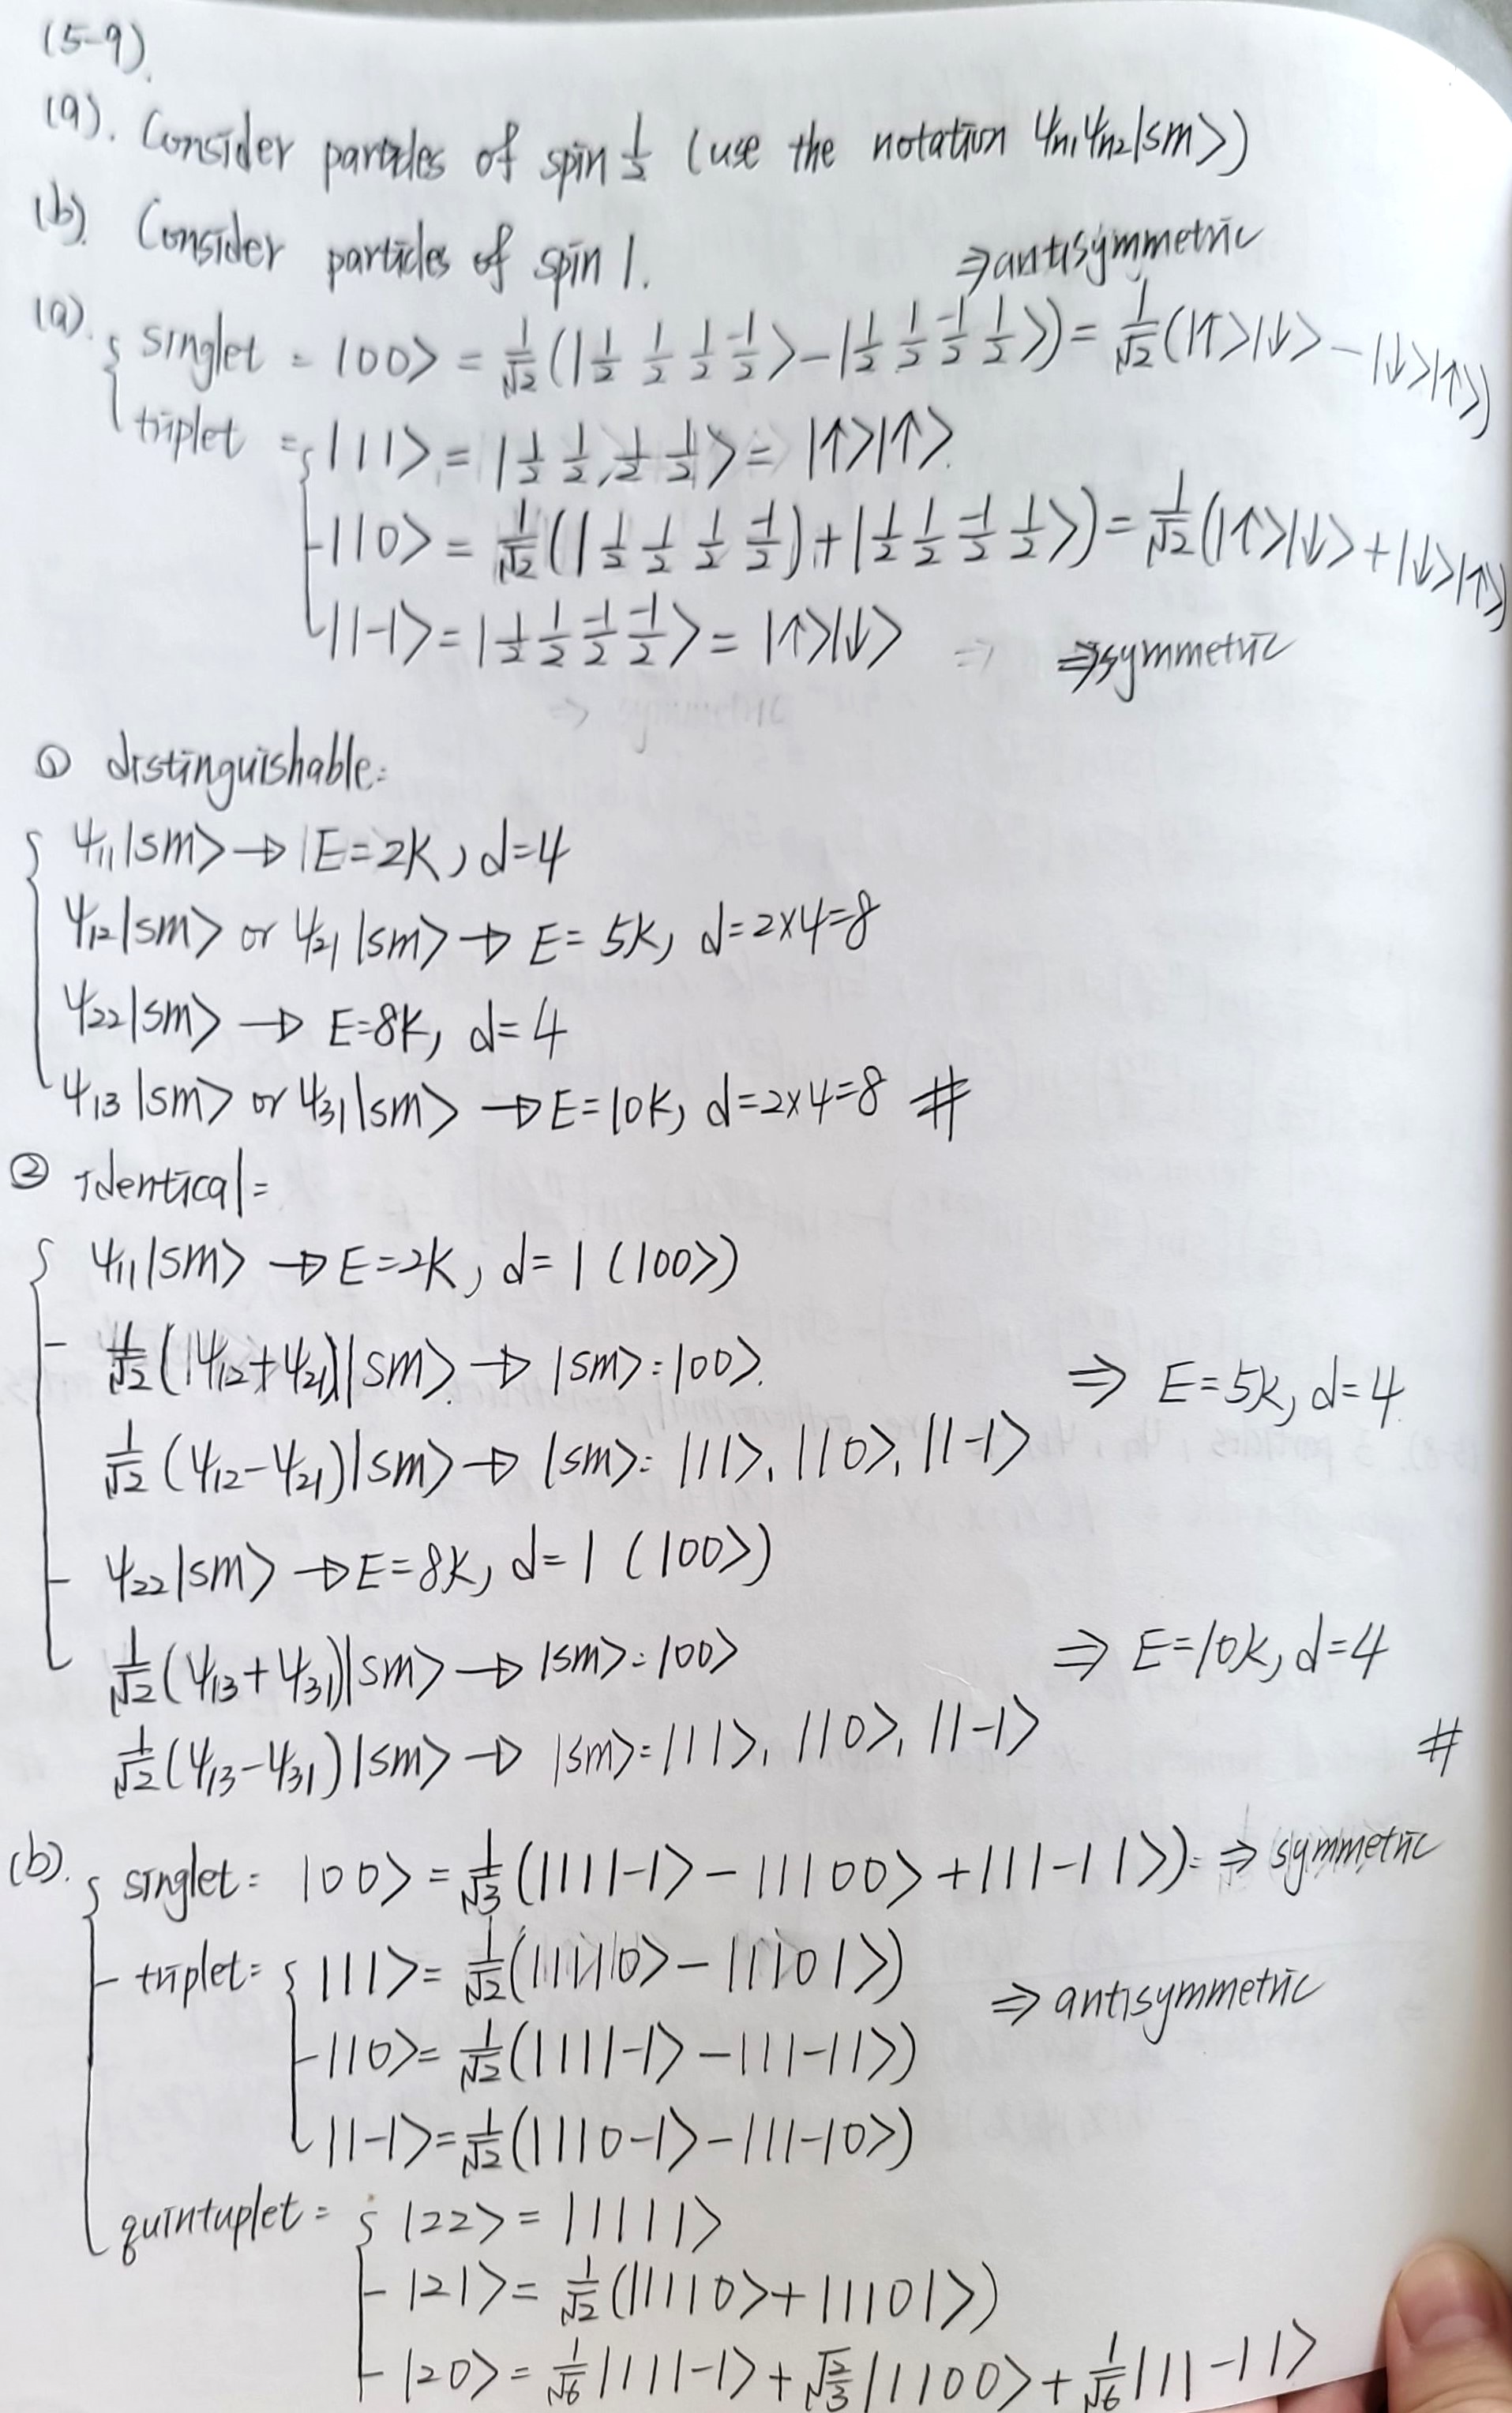 (5-9).
(a). Consider particles of spin 1/2 (use the notation ψn₁ψn₂|sm>)
(b). Consider particles of spin 1.
⇒ antisymmetric
(a). singlet = |00> = 1/√2 (|1/2 1/2 1/2 -1/2> - |1/2 1/2 -1/2 1/2>) = 1/√2 (|↑>|↓> - |↓>|↑>)
triplet = |11> = |1/2 1/2, 1/2 1/2> = |↑>|↑>.
|10> = 1/√2 (|1/2 1/2 1/2 -1/2) + |1/2 1/2 -1/2 1/2>) = 1/√2 (|↑>|↓> + |↓>|↑>)
|1-1> = |1/2 1/2 -1/2 -1/2> = |↑>|↓> ⇒ symmetric
① distinguishable:
ψ₁₁|sm> → E=2K, d=4
ψ₁₂|sm> or ψ₂₁|sm> → E=5K, d=2×4=8
ψ₂₂|sm> → E=8K, d=4
ψ₁₃|sm> or ψ₃₁|sm> → E=10K, d=2×4=8 #
② identical =
ψ₁₁|sm> → E=2K, d=1 (|00>)
1/√2 (ψ₁₂+ψ₂₁)|sm> → |sm> = |00>. ⇒ E=5K, d=4
1/√2 (ψ₁₂-ψ₂₁)|sm> → |sm> = |11>, |10>, |1-1>
ψ₂₂|sm> → E=8K, d=1 (|00>)
1/√2 (ψ₁₃+ψ₃₁)|sm> → |sm> = |00> ⇒ E=10K, d=4
1/√2 (ψ₁₃-ψ₃₁)|sm> → |sm> = |11>, |10>, |1-1> #
(b). singlet = |00> = 1/√3 (|111-1> - |1100> + |11-11>) ⇒ symmetric
triplet = |11> = 1/√2 (|1110> - |1101>)
⇒ antisymmetric
|10> = 1/√2 (|111-1> - |11-11>)
|1-1> = 1/√2 (|110-1> - |11-10>)
quintuplet = |22> = |1111>
|21> = 1/√2 (|1110> + |1101>)
|20> = 1/√6 |111-1> + √(2/3) |1100> + 1/√6 |11-11>